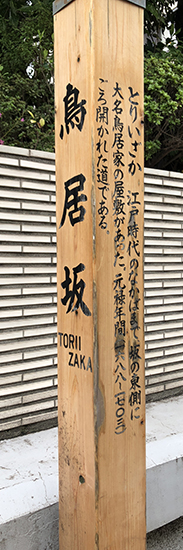 鳥居坂
TORII
ZAKA
とりいざか 江戸時代のなかばまで坂の東側に
大名鳥居家の屋敷があった。元禄年間(一六八八―一七〇三)
ごろ開かれた道である。